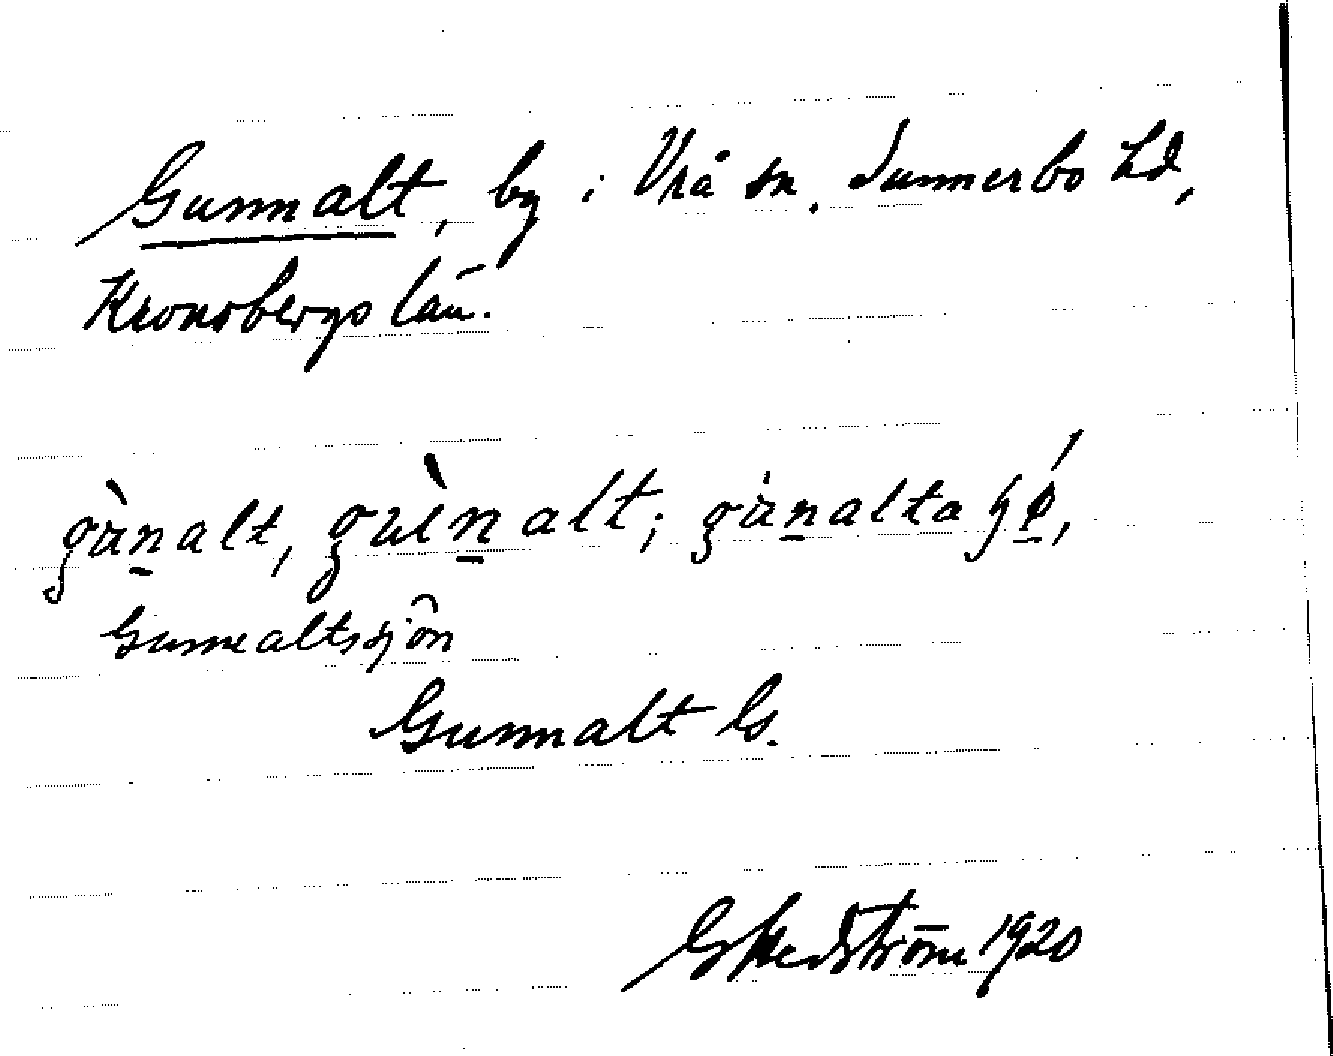 Gunnalt, by i Vrå sn, Sunnerbo hd,
Kronobergs län.
gùnalt, gùnalt; gùnalta
Gunnaltssjön
Gunnalt G.
G Hedström 1920